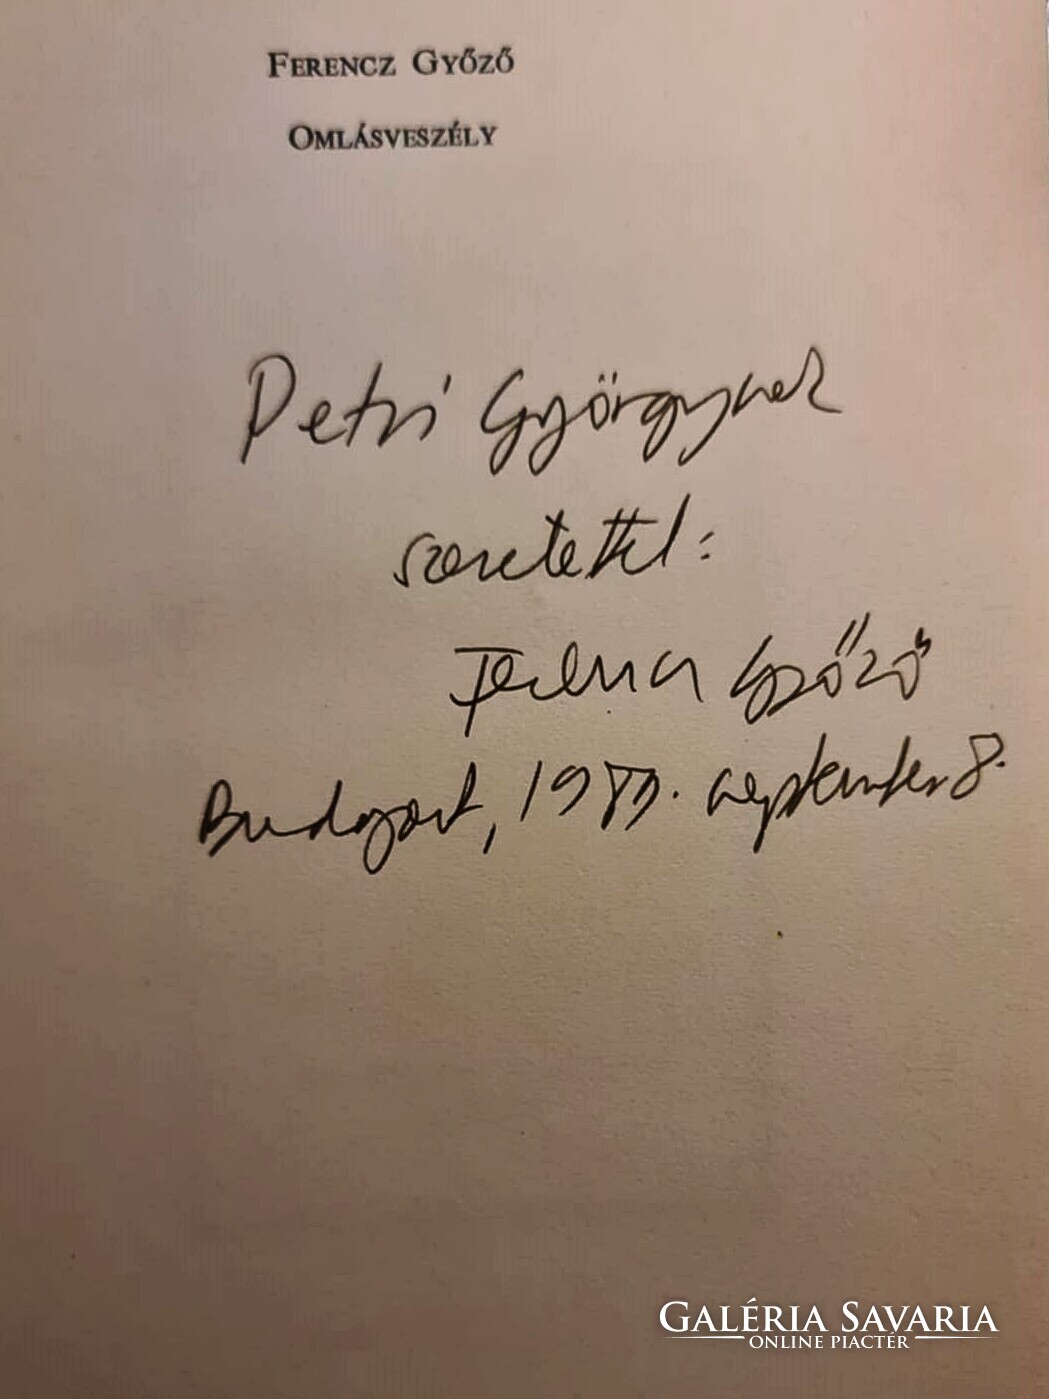 FERENCZ GYŐZŐ
OMLÁSVESZÉLY
Petri Györgynek
szeretettel:
Ferencz Győző
Budapest, 1989. szeptember 8.
GALÉRIA SAVARIA
ONLINE PIACTÉR